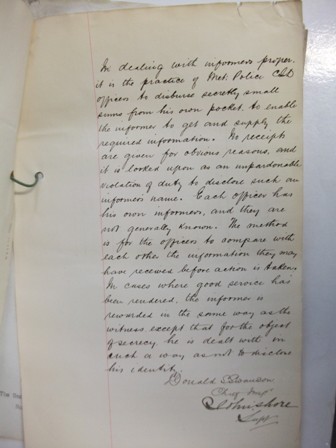 In dealing with informers proper,
it is the practice of Met. Police CID
officers to disburse secretly small
sums from his own pocket to enable
the informer to get and supply the
required information. No receipts
are given for obvious reasons, and
it is looked upon as an unpardonable
violation of duty to disclose such an
informers name. Each officer has
his own informers, and they are
not generally known. The method
is for the officers to compare with
each other the information they may
have received before action is taken.
In cases where good service has
been rendered, the informer is
rewarded in the same way as the
witness except that for the object
of secrecy, he is dealt with in
such a way as not to disclose
his identity.
Donald S Swanson
Chief Insp
John Shore
Supt
The